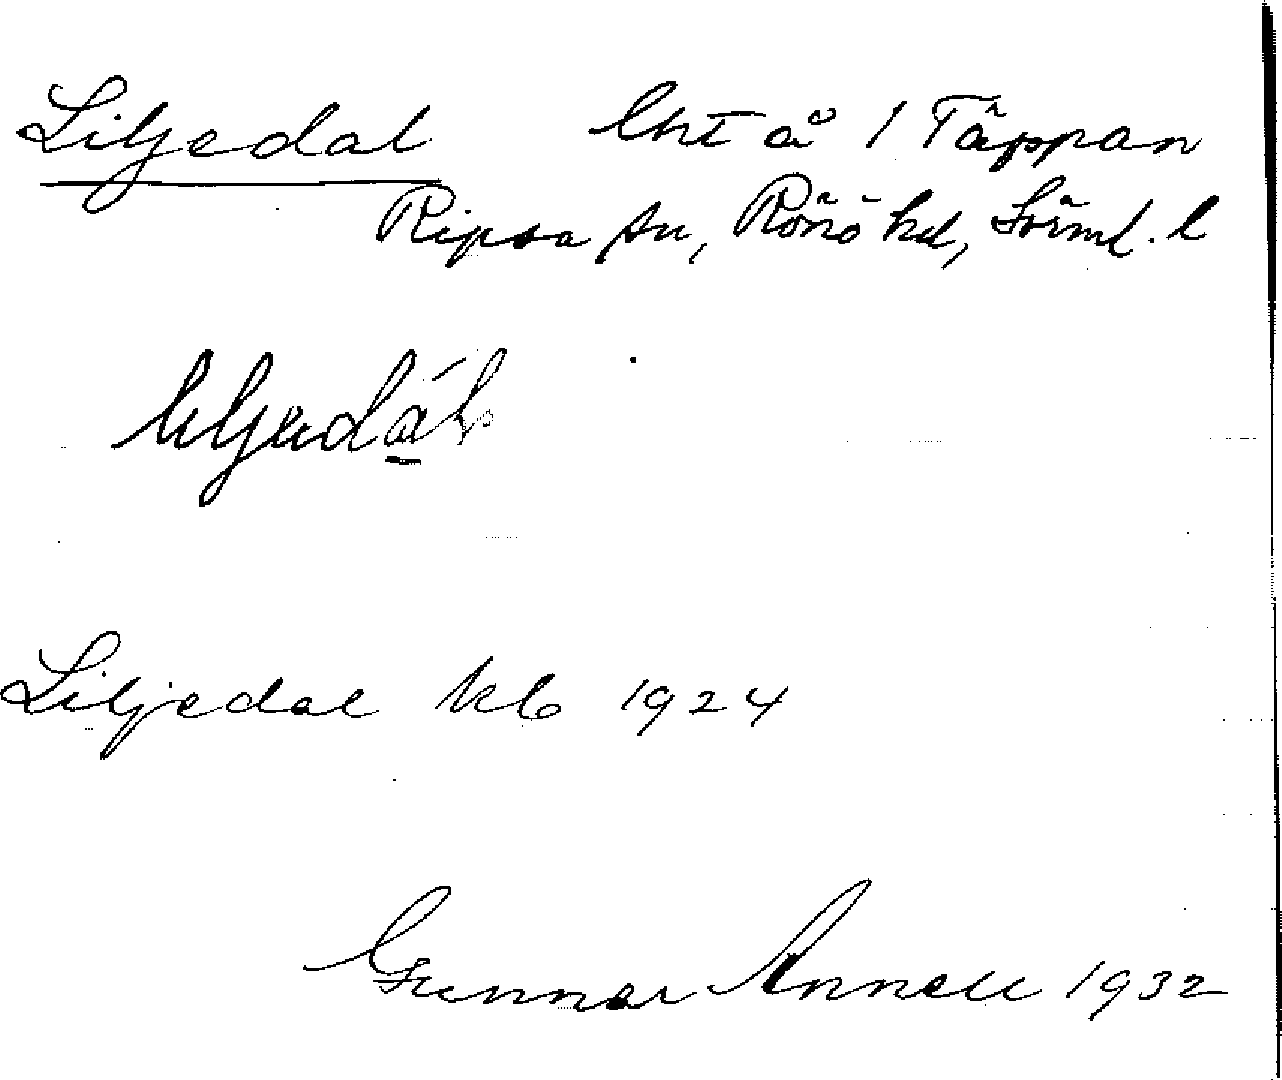 Liljedal lht å 1 Täppan
Ripsa sn, Rönö hd, Sörml. l
liljedál
Liljedal kb 1924
Gunnar Annell 1932